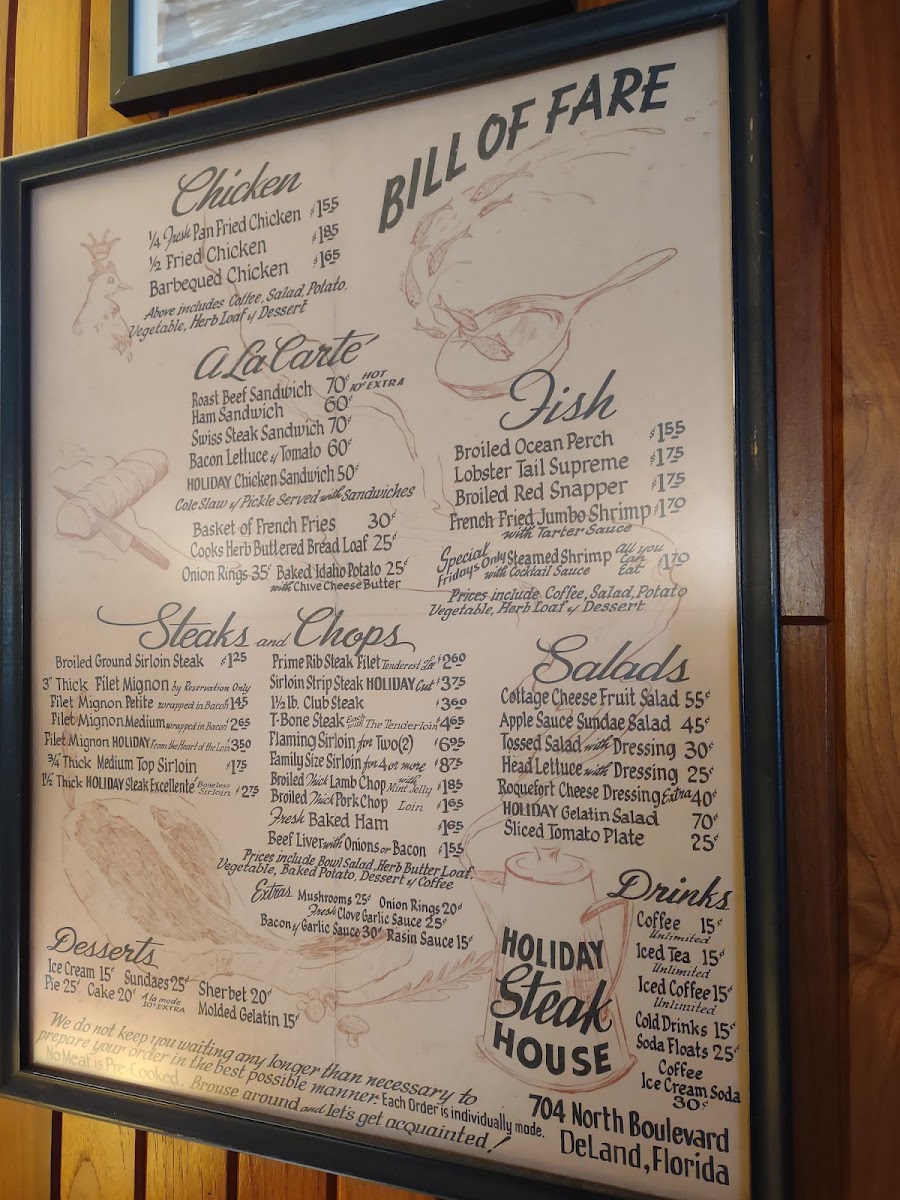 BILL OF FARE
Chicken
1/4 Fresh Pan Fried Chicken $1.55
1/2 Fried Chicken $1.85
Barbequed Chicken $1.65
Above includes Coffee, Salad, Potato,
Vegetable, Herb Loaf & Dessert
A La Carté
Roast Beef Sandwich 70¢ HOT 10¢ EXTRA
Ham Sandwich 60¢
Swiss Steak Sandwich 70¢
Bacon Lettuce & Tomato 60¢
HOLIDAY Chicken Sandwich 50¢
Cole Slaw & Pickle Served with Sandwiches
Basket of French Fries 30¢
Cooks Herb Buttered Bread Loaf 25¢
Onion Rings 35¢ Baked Idaho Potato 25¢
with Chive Cheese Butter
Fish
Broiled Ocean Perch $1.55
Lobster Tail Supreme $1.75
Broiled Red Snapper $1.75
French Fried Jumbo Shrimp $1.70
with Tarter Sauce
Special Fridays Only Steamed Shrimp with Cocktail Sauce All you Can Eat $1.70
Prices include Coffee, Salad, Potato
Vegetable, Herb Loaf & Dessert
Steaks and Chops
Broiled Ground Sirloin Steak $1.25
3" Thick Filet Mignon by Reservation Only
Filet Mignon Petite wrapped in Bacon $1.45
Filet Mignon Medium wrapped in Bacon $2.65
Filet Mignon HOLIDAY From the Heart of the Loin 3.50
3/4" Thick Medium Top Sirloin $1.75
1 1/2" Thick HOLIDAY Steak Excellenté Boneless Sirloin $2.75
Prime Rib Steak Filet Tenderest $2.60
Sirloin Strip Steak HOLIDAY Cut $3.75
1 1/2 lb. Club Steak $3.60
T-Bone Steak with The Tenderloin $4.65
Flaming Sirloin for Two (2) $6.95
Family Size Sirloin for 4 or more $8.75
Broiled Thick Lamb Chop with Mint Jelly $1.85
Broiled Thick Pork Chop Loin $1.65
Fresh Baked Ham $1.65
Beef Liver with Onions or Bacon $1.55
Prices include Bowl Salad, Herb Butter Loaf,
Vegetable, Baked Potato, Dessert & Coffee
Extras Mushrooms 25¢ Onion Rings 20¢
Fresh Clove Garlic Sauce 25¢
Bacon & Garlic Sauce 30¢ Rasin Sauce 15¢
Salads
Cottage Cheese Fruit Salad 55¢
Apple Sauce Sundae Salad 45¢
Tossed Salad with Dressing 30¢
Head Lettuce with Dressing 25¢
Roquefort Cheese Dressing Extra 40¢
HOLIDAY Gelatin Salad 70¢
Sliced Tomato Plate 25¢
Drinks
Coffee 15¢
Unlimited
Iced Tea 15¢
Unlimited
Iced Coffee 15¢
Unlimited
Cold Drinks 15¢
Soda Floats 25¢
Coffee
Ice Cream Soda
30¢
Desserts
Ice Cream 15¢ Sundaes 25¢ Sherbet 20¢
Pie 25¢ Cake 20¢ A la mode 10¢ EXTRA Molded Gelatin 15¢
We do not keep you waiting any longer than necessary to
prepare your order in the best possible manner. Each Order is individually made.
No Meat is Pre-Cooked. Brouse around and let's get acquainted!
HOLIDAY
Steak
HOUSE
704 North Boulevard
DeLand, Florida